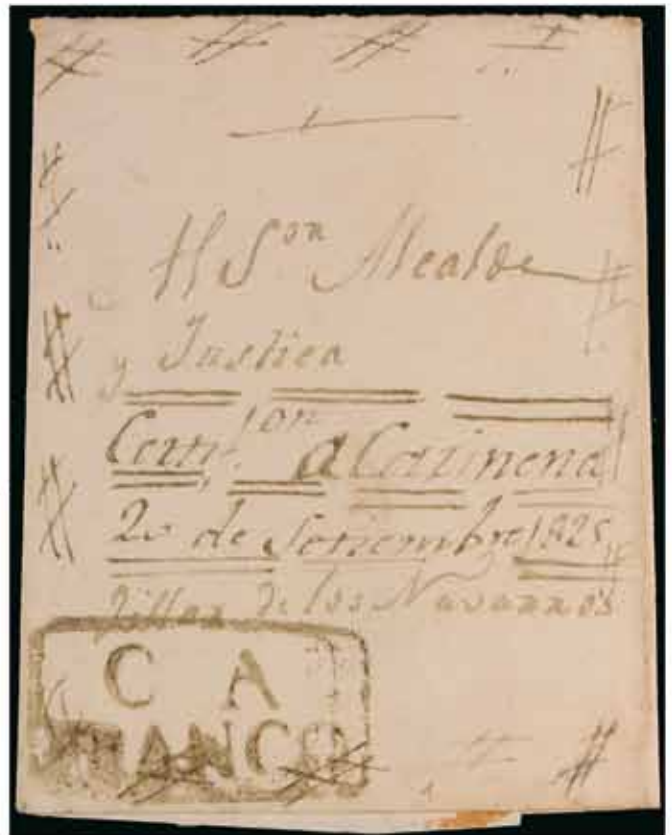 Al Sor Alcalde
y Justica
Certifon a Carinena
20 de Setiembre 1825
Villar de los Navarros
C A
FRANCO